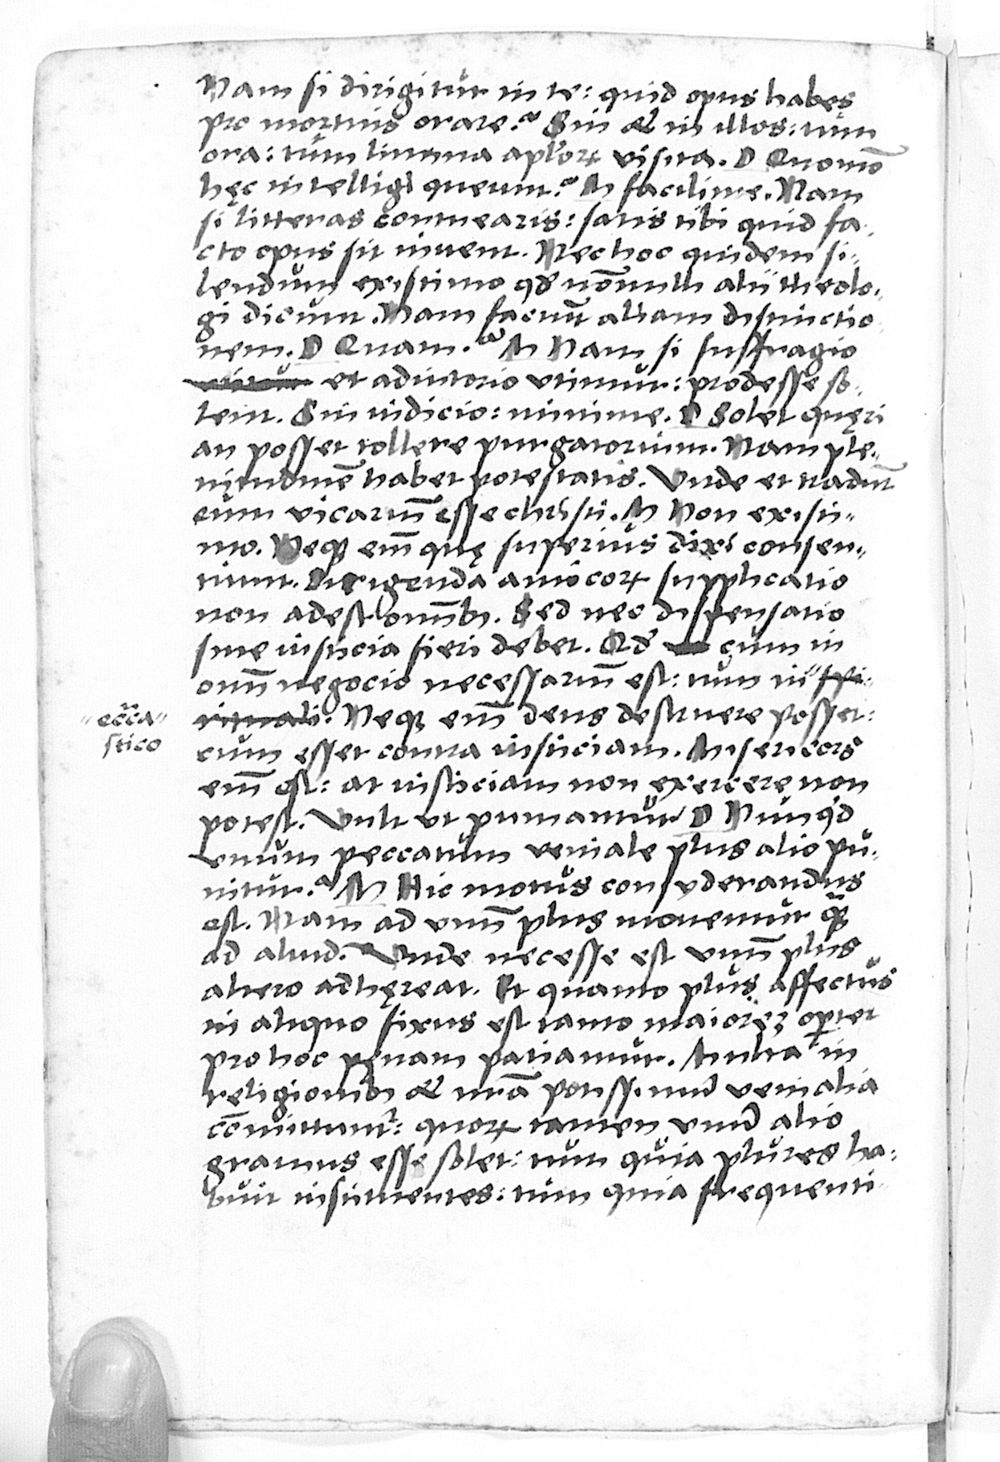 Nam si dirigitur in te: quid opus habes
pro mortuis orare? Sin &̃ in illos: tum
ora: tum limina apl'oꝝ visita. D Quomo͞
hęc intelligi queunt? M facilime. Nam
si litteras contuearis: satis tibi quid fa-
cto opus sit inuent. Nec hoc quidem si-
lendum existimo qđ no͞nulli alij theolo-
gi dicunt. Nam faciu͞t aliam distinctio
nem. D Quam? M Nam si suffragio
et adiutorio vtimur: prodesse so-
lent. Sin iudicio: minime. D Solet quęri
an posset tollere purgatorium. Nam ple-
nitudine͞ habet potestatis. Vnde et tradu͞t
eum vicariu͞ esse christi. M Non existi-
mo. Neqꝫ em͞ quę superius dixi consen-
tiunt. Dirigenda amicoꝝ supplicatio
non adest omnibꝫ. Sed nec dispensatio
sine iusticia fieri debet. Qđ cum in
omni͞ negocio necessariu͞ est: tum in " spi-
rituali. Neqꝫ em͞ deus destruere posset:
"ecc͞a"
stico
cum esset contra iusticiam. Misericors
em͞ est: at iusticiam non exercere non
potest. Vult vt puniantur D Nunqđ
vnum peccatum veniale plus alio pu-
nitur? M Hic motus consyderandus
est. Nam ad vnu͞ plus mouemur q͞
ad aliud. Vnde necesse est vnu͞ plus
altero adhęreat. Et quanto plus affectus
in aliquo fixus est tanto maiorẽ oportet
pro hoc pęnam patiamur. Multa in
religionibꝫ &̃ n͞ra͞ potissimu͞ venialia
co͞mittunt': quoꝝ tamen vnu͞ alio
grauius esse solet: tum quia plures ha-
buit instituentes: tum quia frequenti-